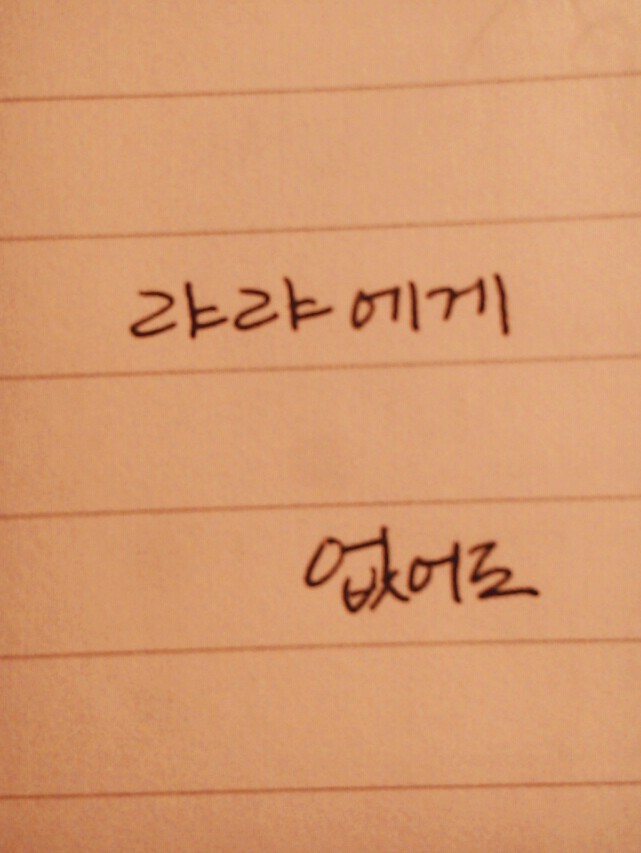 랴랴에게
없어도